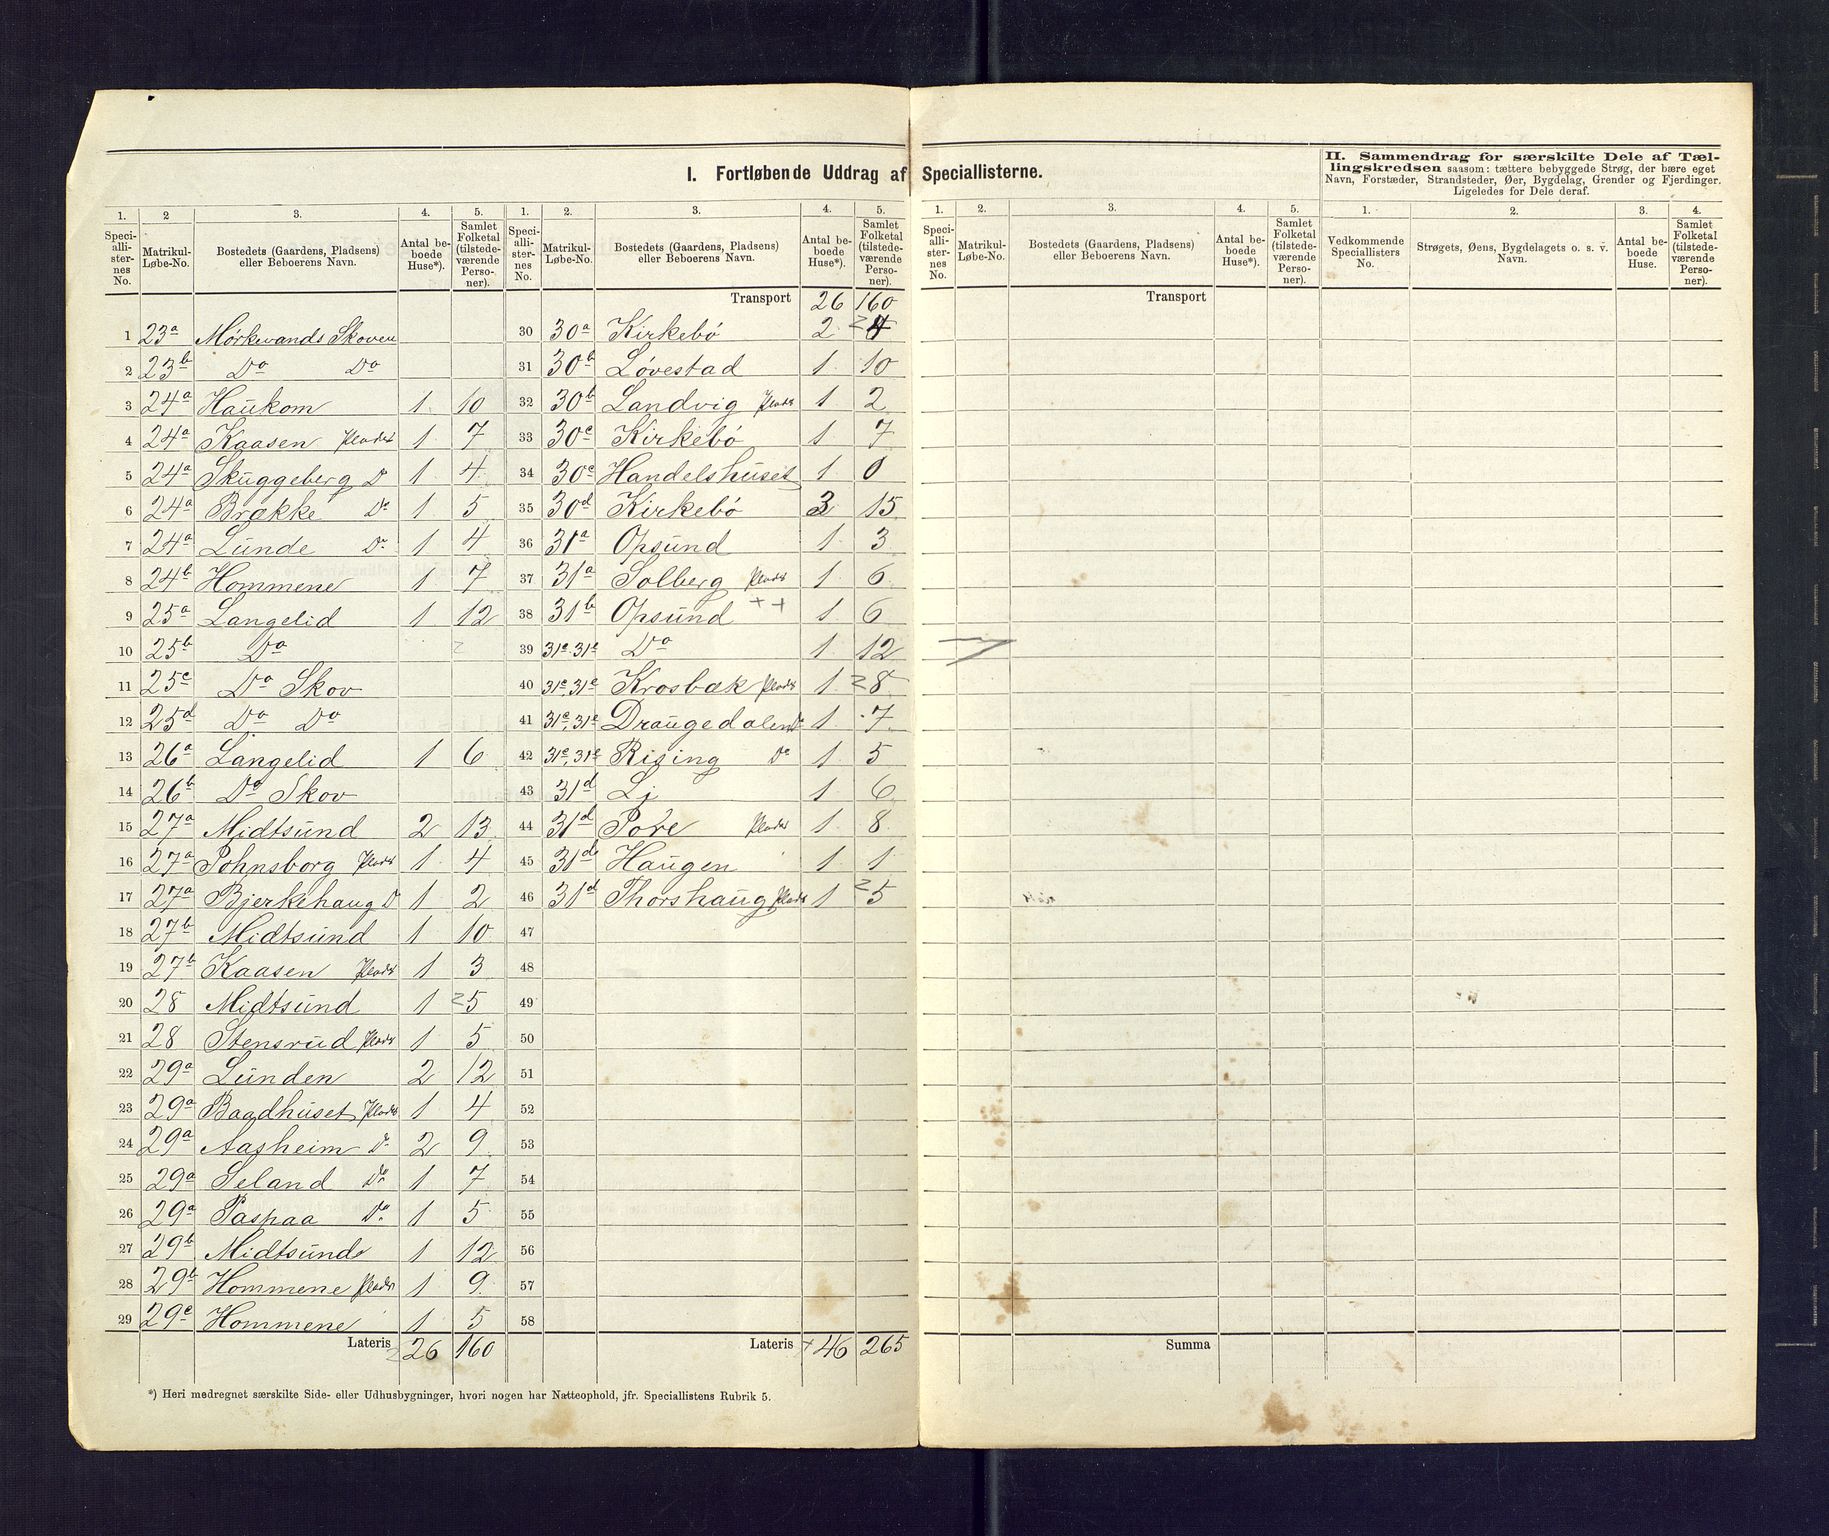 I. Fortløbende Uddrag af Speciallisterne.
II. Sammendrag for særskilte Dele af Tæl-
lingskredsen saasom: tættere bebyggede Strøg, der bære eget
Navn, Forstæder, Strandsteder, Øer, Bygdelag, Grender og Fjerdinger.
Ligeledes for Dele deraf.
1. 2 3. 4. 5. 1. 2. 3. 4. 5. 1. 2. 3. 4. 5. 1. 2. 3. 4.
Speci-alli-ster-nes No. Matrikul-Løbe-No. Bostedets (Gaardens, Pladsens) eller Beboerens Navn. Antal be-boede Huse*). Samlet Folketal (tilstede-værende Perso-ner).
Speci-alli-ster-nes No. Matrikul-Løbe-No. Bostedets (Gaardens, Pladsens) eller Beboerens Navn. Antal be-boede Huse*). Samlet Folketal (tilstede-værende Perso-ner).
Speci-alli-ster-nes No. Matrikul-Løbe-No. Bostedets (Gaardens, Pladsens) eller Beboerens Navn. Antal be-boede Huse*). Samlet Folketal (tilstede-værende Perso-ner).
Vedkommende Speciallisters No. Strøgets, Øens, Bygdelagets o. s. v. Navn. Antal be-boede Huse. Samlet Folketal (tilstede-værende Perso-ner).
1 23a Mørkevands Skoven
2 23b Do Do
3 24a Haukom 1 10
4 24a Kaasen Plads 1 7
5 24a Skuggeberg Do 1 4
6 24a Brække Do 1 5
7 24a Lunde Do 1 4
8 24b Hommene 1 7
9 25a Langelid 1 12
10 25b Do
11 25c Do Skov
12 25d Do Do
13 26a Langelid 1 6
14 26b Do Skov
15 27a Midtsund 2 13
16 27a Johnsborg Plads 1 4
17 27a Bjerkehaug Do 1 2
18 27b Midtsund 1 10
19 27b Kaasen Plads 1 3
20 28 Midtsund 1 5
21 28 Stensrud Plads 1 5
22 29a Lunden 2 12
23 29a Baadhuset Plads 1 4
24 29a Aasheim Do 2 9
25 29a Seland Do 1 7
26 29a Paspaa Do 1 5
27 29b Midtsund 1 12
28 29b Hommene Plads 1 9
29 29c Hommene 1 5
Lateris 26 160
Transport 26 160
30 30a Kirkebö 2 4
31 30b Løvestad 1 10
32 30b Landvig Plads 1 2
33 30c Kirkebö 1 7
34 30c Handelshuset 1 0
35 30d Kirkebö 3 15
36 31a Opsund 1 3
37 31a Solberg Plads 1 6
38 31b Opsund ++ 1 6
39 31c, 31e Do 1 12
40 31c, 31e Krosbæk Plads 1 8
41 31c, 31e Draugedalen Do 1 7
42 31c, 31e Rising Do 1 5
43 31d Li 1 6
44 31d Pore Plads 1 8
45 31d Haugen 1 1
46 31d Thorshaug Plads 1 5
47
48
49
50
51
52
53
54
55
56
57
58
Lateris 46 265
Transport
Summa
*) Heri medregnet særskilte Side- eller Udhusbygninger, hvori nogen har Natteophold, jfr. Speciallistens Rubrik 5.